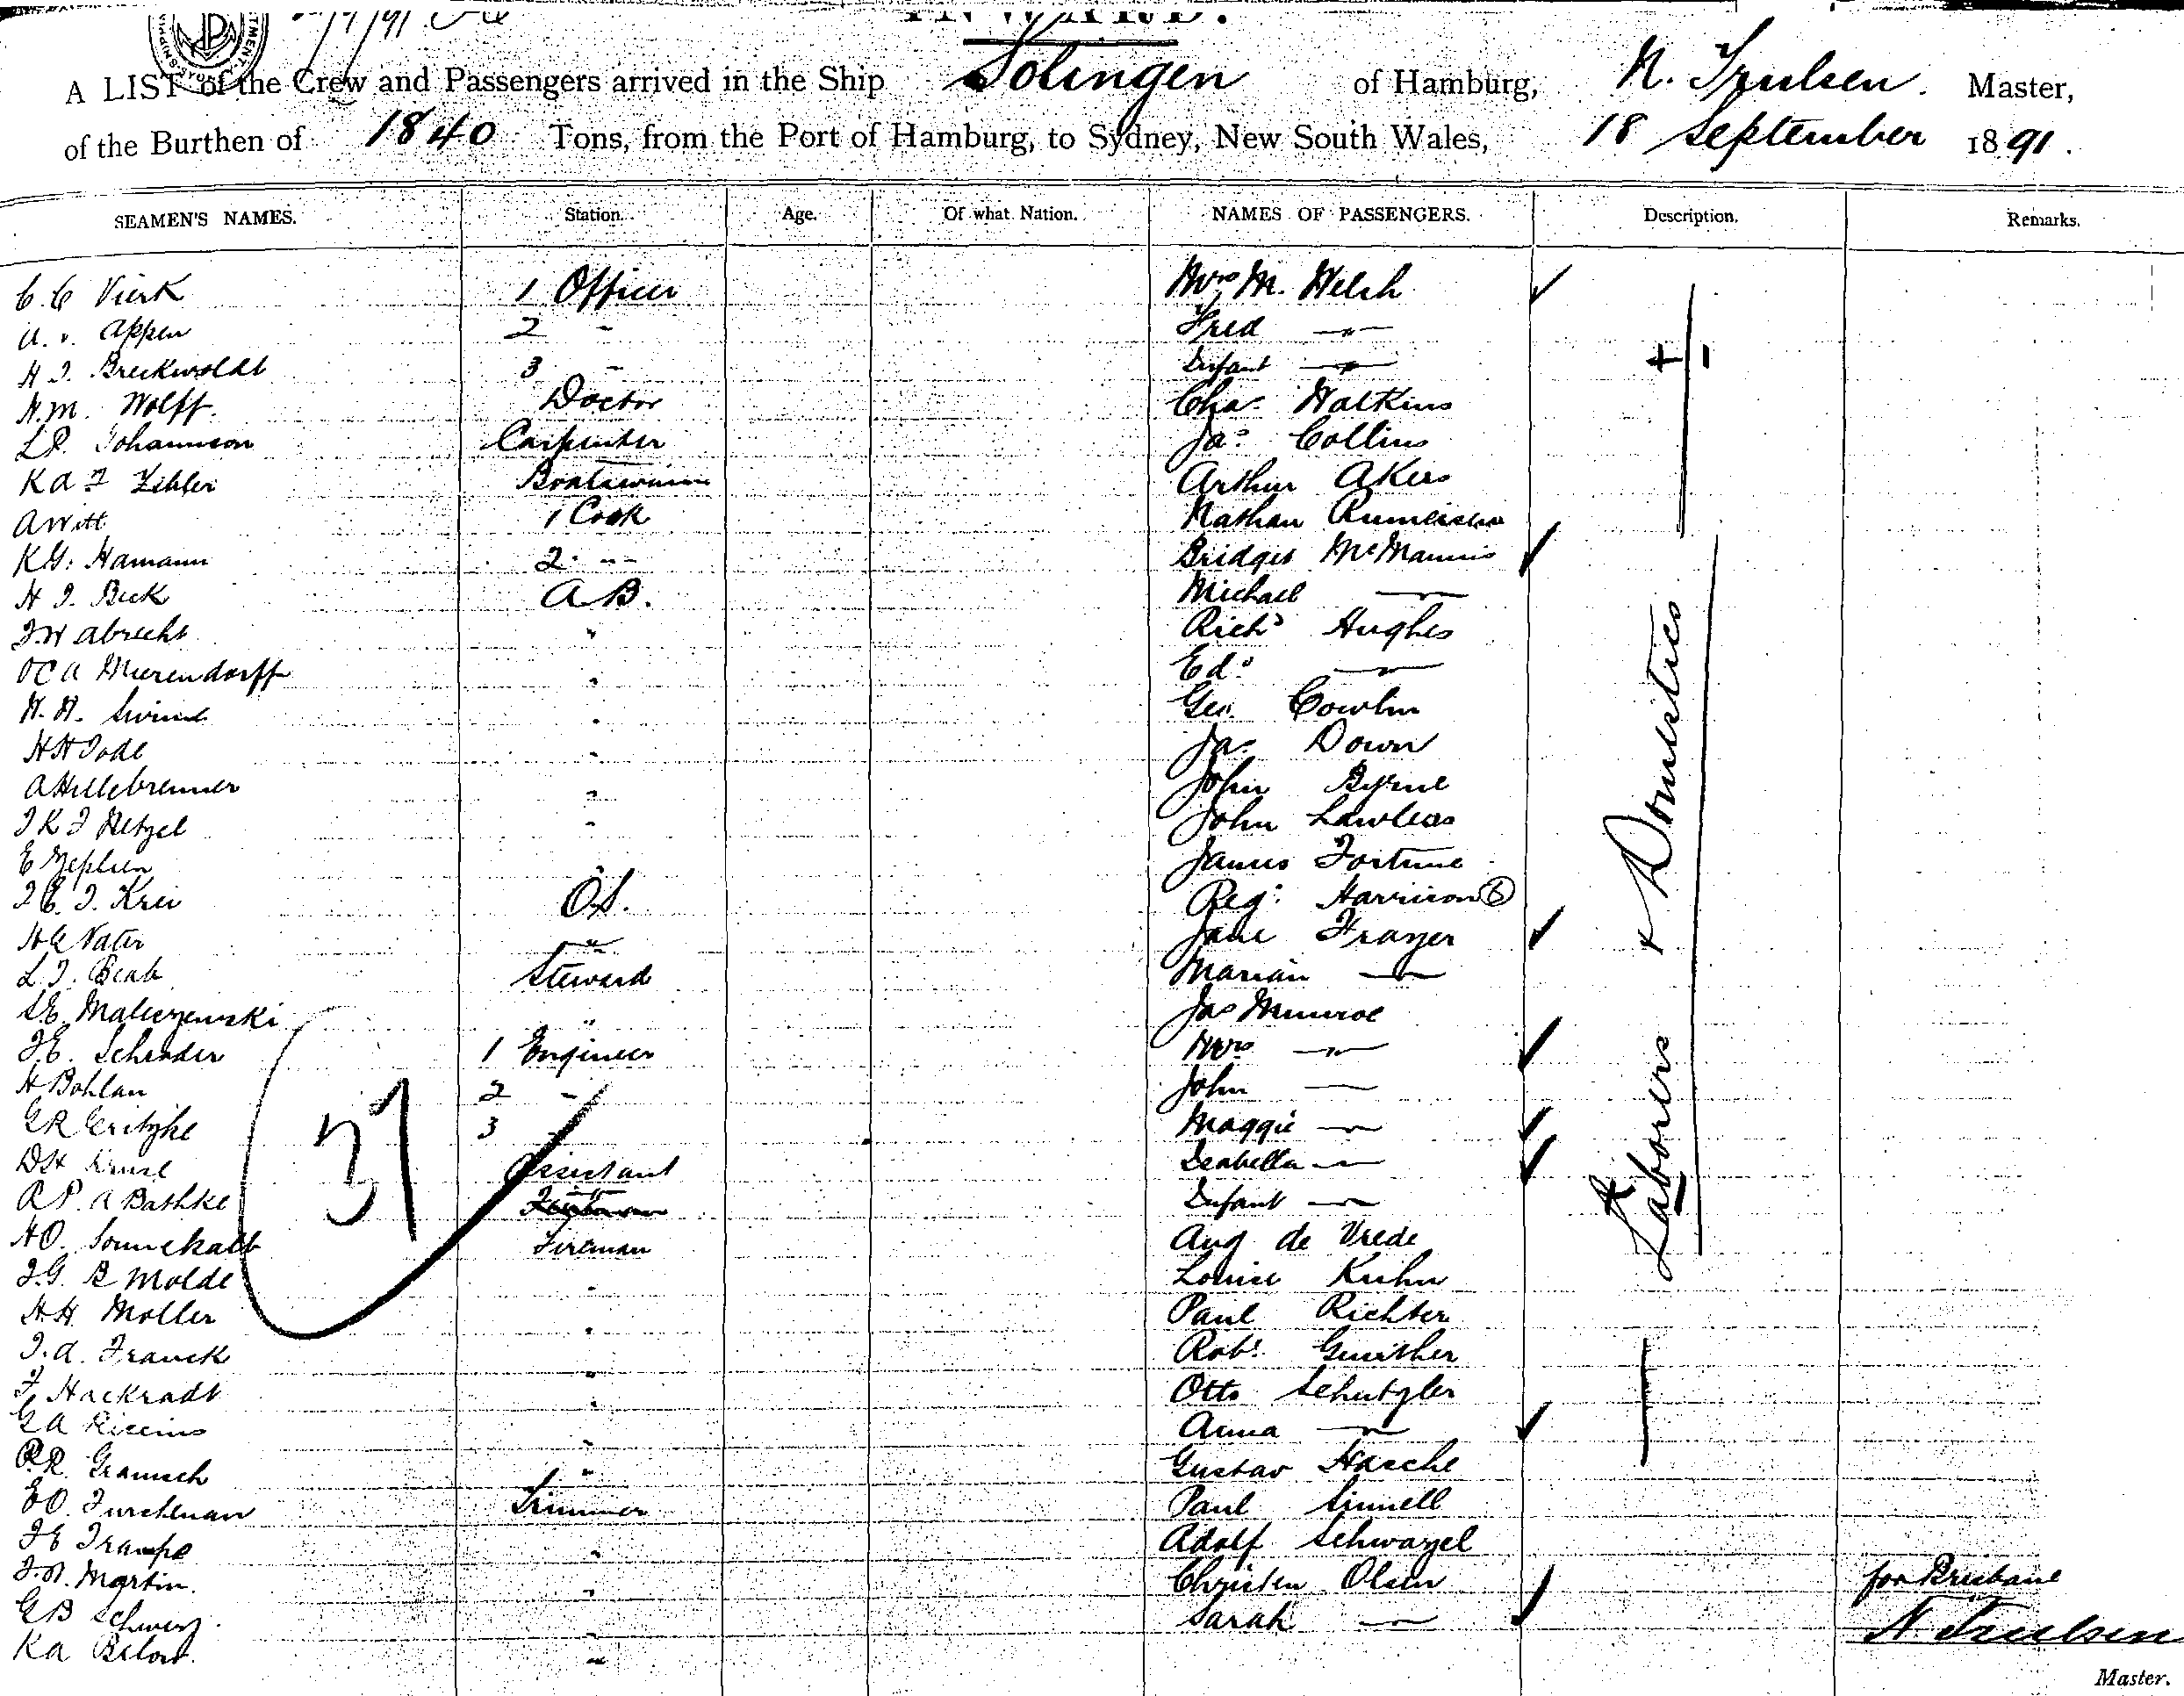 INWARD.
A LIST of the Crew and Passengers arrived in the Ship Solingen of Hamburg, N. Trulsen. Master,
of the Burthen of 1840 Tons, from the Port of Hamburg, to Sydney, New South Wales, 18 September 1891.
SEAMEN'S NAMES. Station. Age. Of what Nation. NAMES OF PASSENGERS. Description. Remarks.
C. C Vierk 1 Officer Mrs M. Welsh
a. v. Appen 2 " Fred "
H J. Breckwoldt 3 " Infant "
H.M. Wolff. Doctor Cha. Watkins
L.P. Johannson Carpenter Jas Collins
K A F Arthur Akers
A Witt 1 Cook Nathan
K G. Hamann 2 " Bridget McMannis
H J. Beck A.B. Michael "
J.W Abrecht " Richd Hughes
O C A Mierendorff " Edd "
H. H. " Geo. Cowlin
H H Tode " Ja. Down
A Hillebrenner " John Byrne
J K F Hetzel " John Lawless
E Zeplien " James Fortune
J E. J. Krei O.S. Reg: Harrison
H C Vater " Jane Frazer
L. J. Steward Marian "
S E. Maliczewski " Jas Munroe
J.E. Schroder 1 Engineer Mrs "
H Bohlan 2 " John "
G R 3 " Maggie "
D H Kruse Assistant Isabella "
R P. A Bathke Infant "
H O. Sonnekalb Fireman Aug de Vrede
J.G. B Molde " Louise Kuhn
H.H. Moller " Paul Richter
J. A. Franck " Robt. Gunther
F Hackradt " Otto Schutzler
G A " Anna "
P.R. Gramsch " Gustav Hasche
E O. Furchtman Trimmer Paul Sinnell
J E Trampe " Adolf Schwazel
J. H. Martin. " Christen Olsen for Brisbane
G B Schwerz. " Sarah " N. Trulsen
K A Below. "
Master.
37
Laborers & Domestics